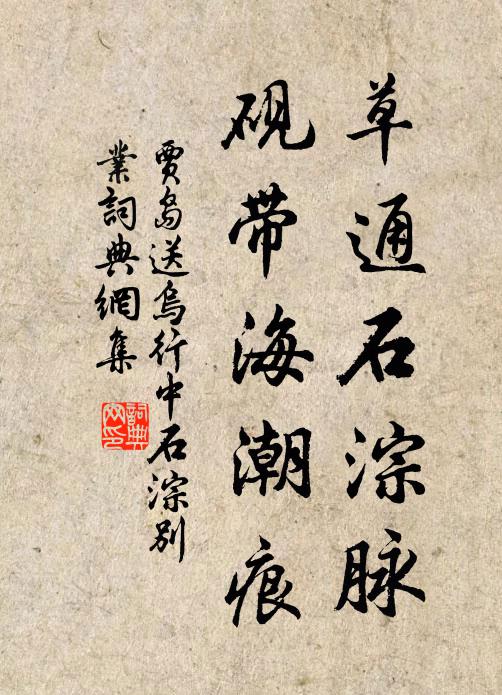 草通石淙脉
砚带海潮痕
贾岛送乌行中石淙别
業詞典網集
詞典网印